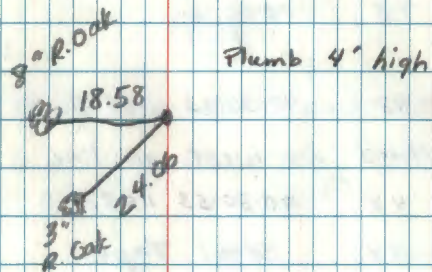 8" R. Oak
Plumb 4' high
18.58
24.06
3"
R Oak